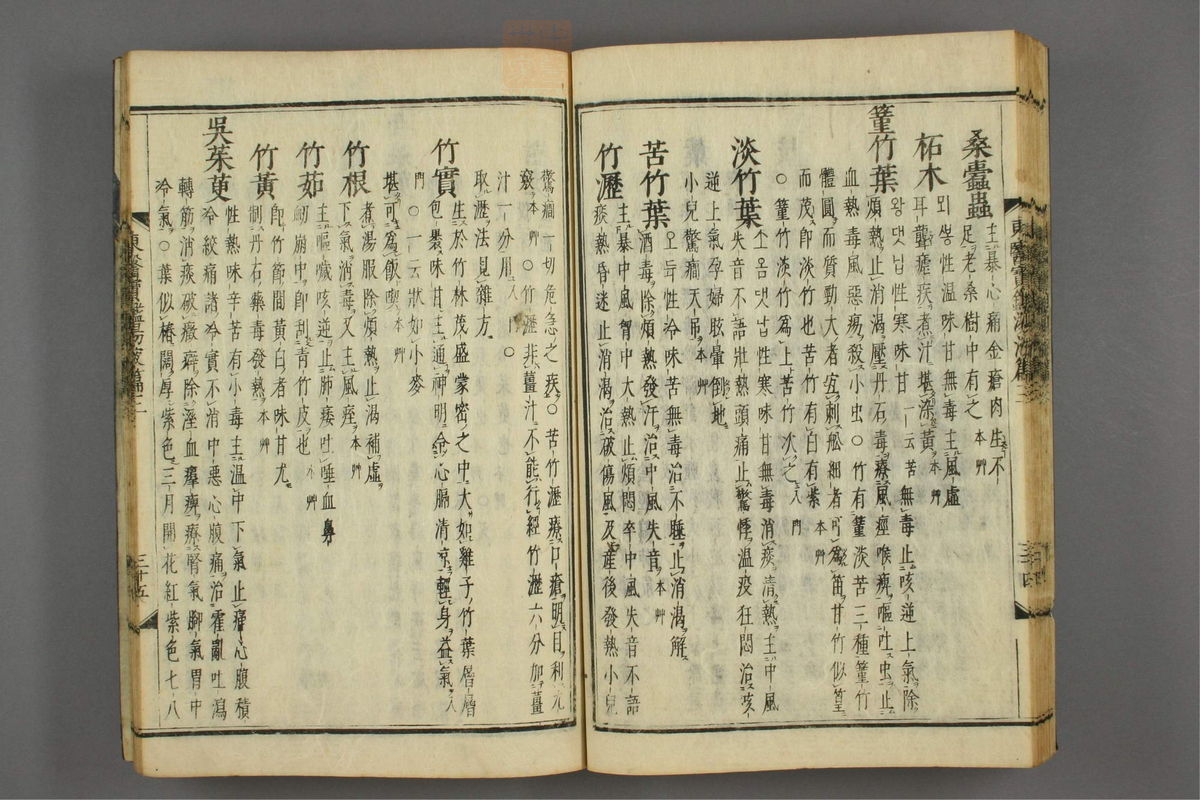 桑蠹蟲 主暴心痛金瘡肉生不
足老桑樹中有之 本艸
柘木 耳聾瘧疾煮汁堪染黃 本艸
외ᄡᅩᆼ性温味甘無毒主風虛
篁竹葉 왕댓닙性寒味甘 一云苦 無毒止咳逆上氣除
煩熱止消渴壓丹石毒療風痙喉痺嘔吐虫止
血熱毒風惡瘍殺小虫○竹有篁淡苦三種篁竹
體圓而質勁大者宜刺舩細者可爲笛甘竹似篁
而茂卽淡竹也苦竹有白有紫 本艸
○篁竹淡竹爲上苦竹次之 入門
淡竹葉 소옴댓닙性寒味甘無毒消痰淸熱主中風
失音不語壯熱頭痛止驚悸温疫狂悶治咳
逆上氣孕婦眩暈倒地
小兒驚癎天吊 本艸
苦竹葉 오듁性冷味苦無毒治不睡止消渴解
酒毒除煩熱發汗治中風失音 本艸
竹瀝 主暴中風胷中大熱止煩悶卒中風失音不語
痰熱昏迷止消渴治破傷風及産後發熱小兒
驚癎一切危急之疾○苦竹瀝療口瘡明目利九
竅 本艸 ○竹瀝非薑汁不能行經竹瀝六分加薑
汁一分用 入門 ○
取瀝法見雜方
竹實 生於竹林茂盛蒙密之中大如雞子竹葉層層
包裹味甘主通神明令心膈淸凉輕身益氣 入
門 ○一云狀如小麥
堪可爲飯喫 本艸
竹根 煮湯服除煩熱止渴補虛
下氣消毒又主風痓 本艸
竹茹 主嘔噦咳逆止肺痿吐唾血鼻
衄崩中卽刮靑竹皮也 本艸
竹黃 卽竹節間黃白者味甘尤
制丹石藥毒發熱 本艸
吳茱萸 性熱味辛苦有小毒主温中下氣止痛心腹積
冷絞痛諸冷實不消中惡心腹痛治霍亂吐瀉
轉筋消痰破癥癖除濕血㿏痺療腎氣脚氣胃中
冷氣○葉似椿闊厚紫色三月開花紅紫色七八
三十四
三十五